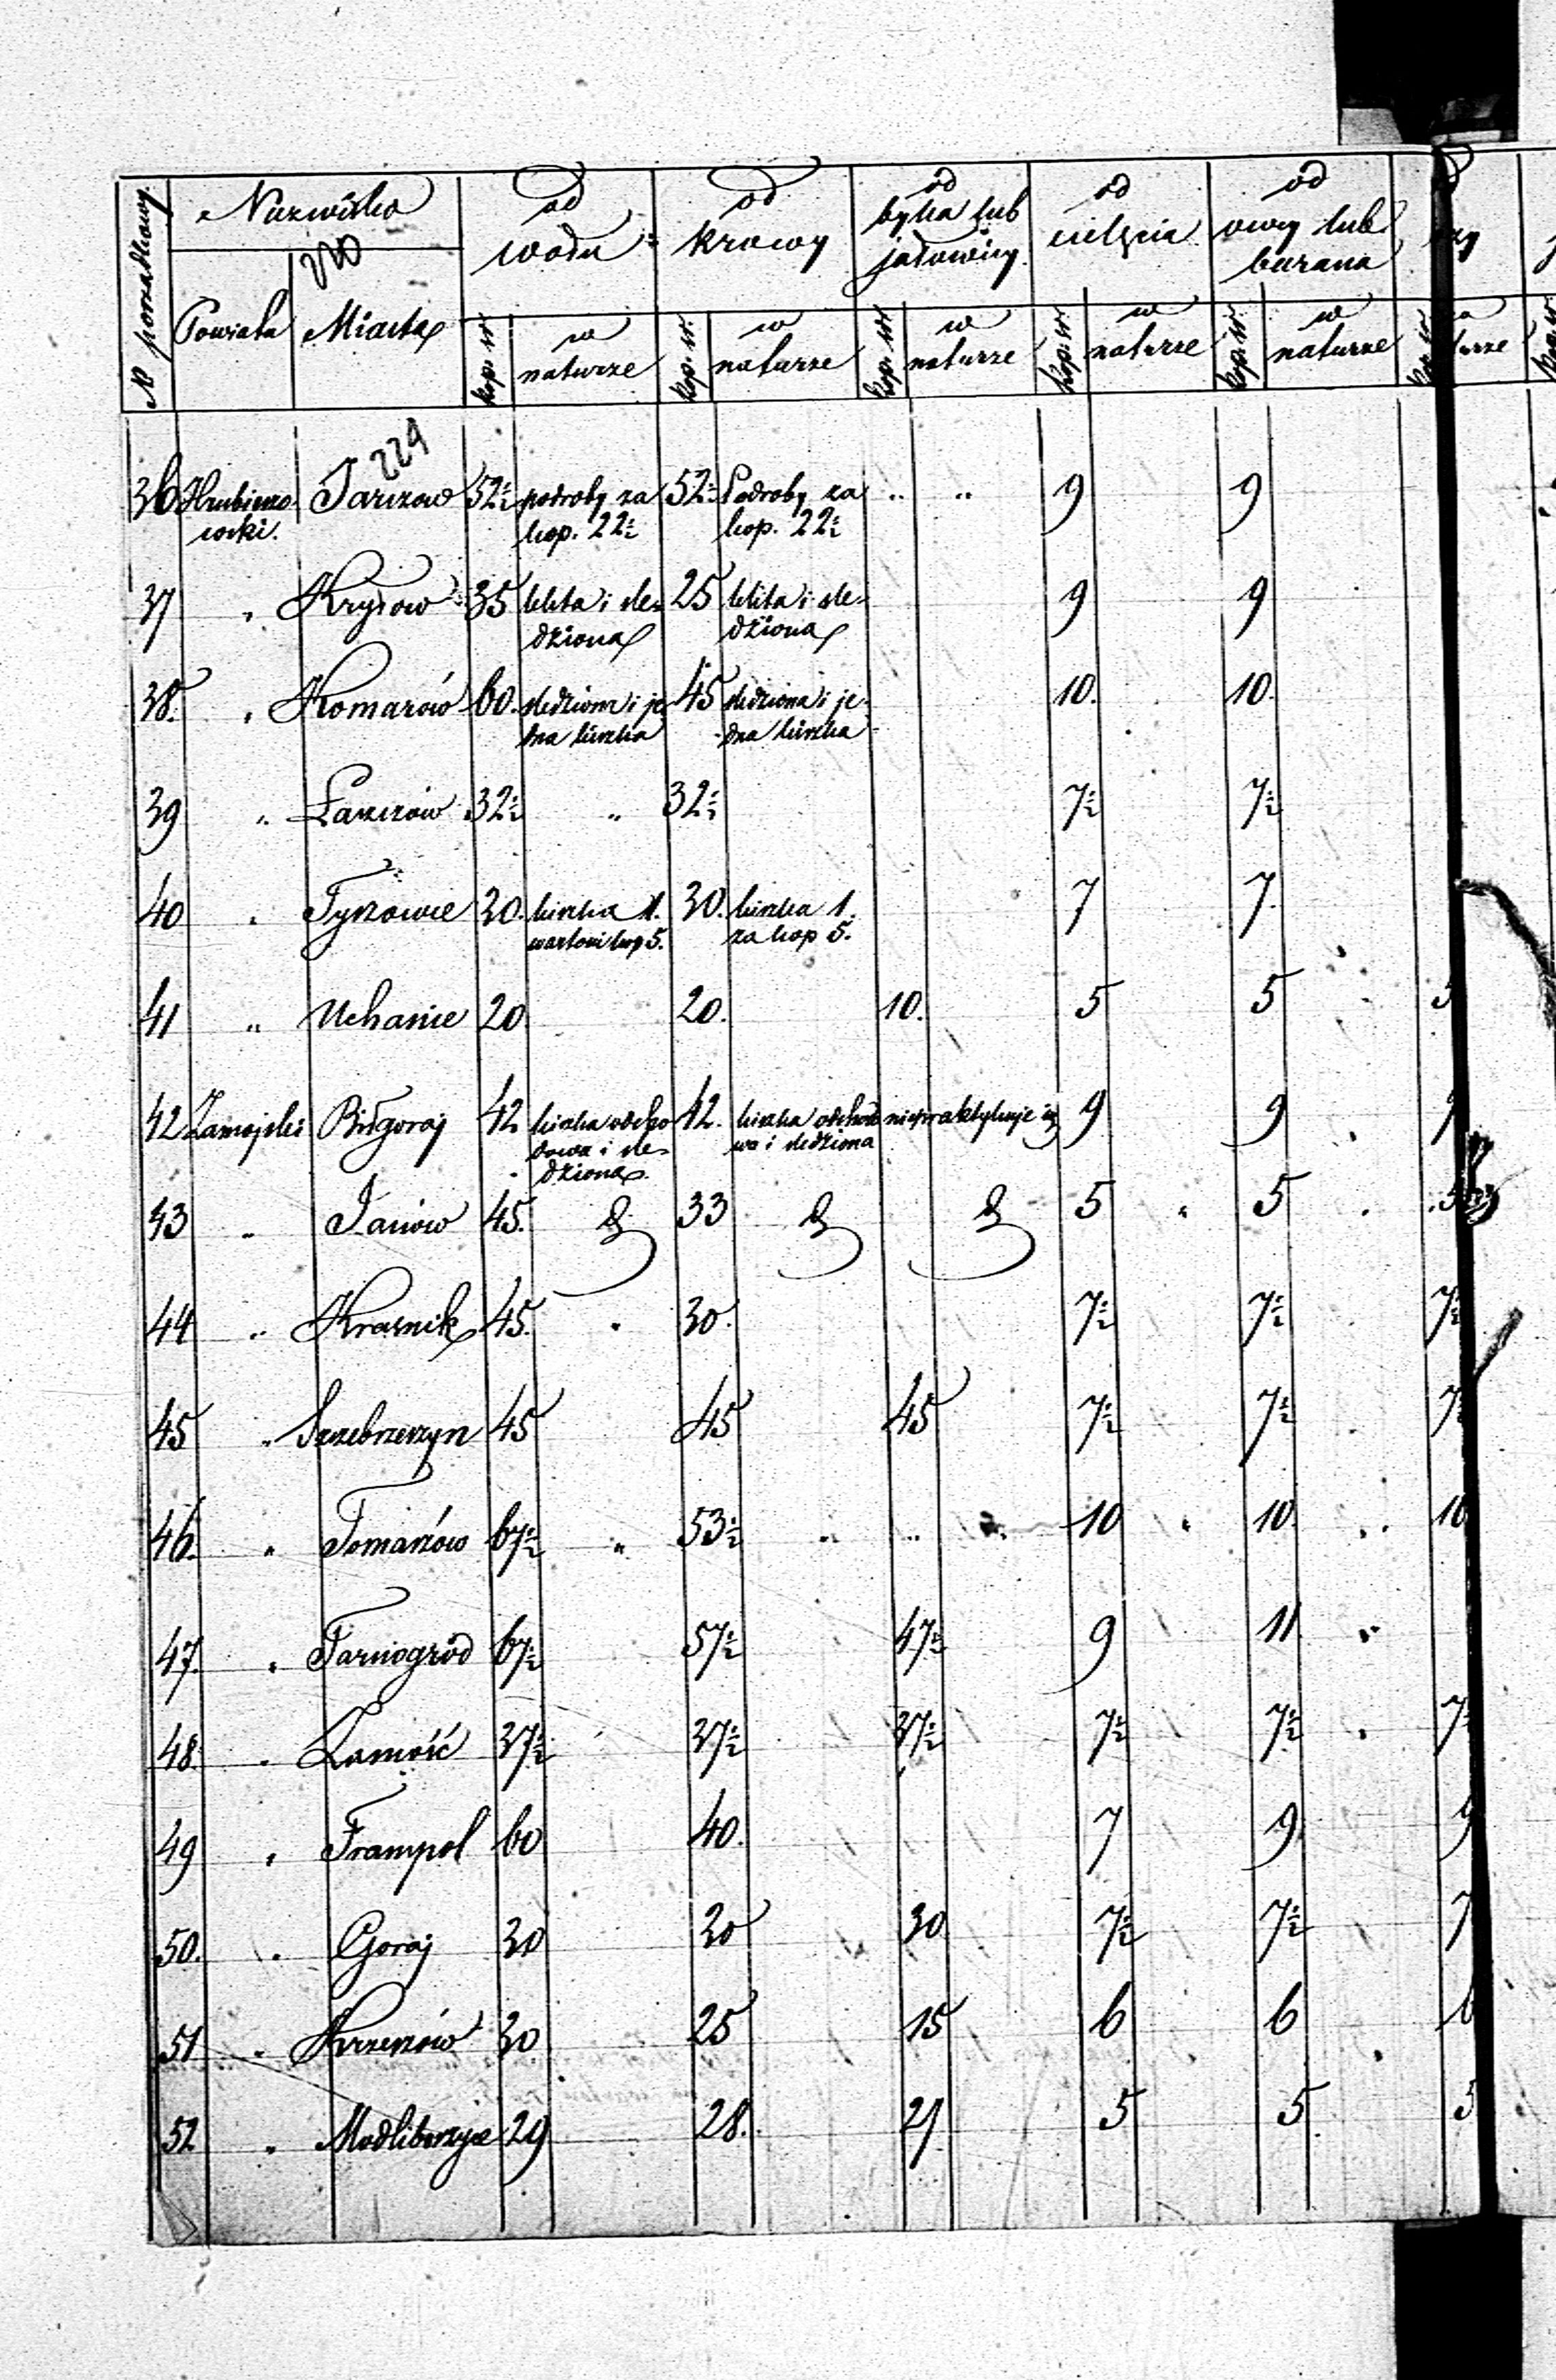 № porządkowy | Nazwisko | od wołu | od krowy | od byka lub jałowicy | od cielęcia | od owcy lub barana
220
Powiatu | Miasta | kop. sr. | w naturze | kop. sr. | w naturze | kop. sr. | w naturze | kop. sr. | w naturze | kop. sr. | w naturze
229
36 Hrubieszo Jarczow 52½ podroby za 52½ Podroby za " " 9 9
wski. kop. 22½ kop. 22½
37 " Kryłow 35 lelita i śle- 25 lelita i śle- 9 9
dziona dziona
38. " Komarów 60. śledziona i je 45 śledziona i je- 10. 10.
dna kiszka dna kiszka
39 " Łaszczów 32½ " 32½ 7½ 7½
40 " Tyszowce 30. kiszka 1. 30. kiszka 1. 7 7.
wartości kop 5. za kop 5.
41 " Uchanie 20 20. 10. 5 5 5
42 Zamojski Biłgoraj 42 kiszka odcho 42. kiszka odchodo niepraktykuje się 9 9 9
dowa i śle- wa i śledziona
dziona.
43 " Janów 45. 33 5 " 5 . 5
44 " Krasnik 45. " 30. 7½ 7½ 7½
45 " Szczebrzeszyn 45 45 45 7½ 7½ 7½
46. " Tomaszów 67½ " 53½ " " " 10 " 10. " 10
47. " Tarnogród 67½ 57½ 47½ 9 11 "
48. " Zamość 37½ 37½ 37½ 7½ 7½ " 7
49 " Frampol 60 40. 7 9 9
50. " Goraj 30 30 30 7½ 7½ 7
51 " Krzeszów 30 25 15 6 6 6
52 " Modliborzyce 29 28. 21 5 5 5